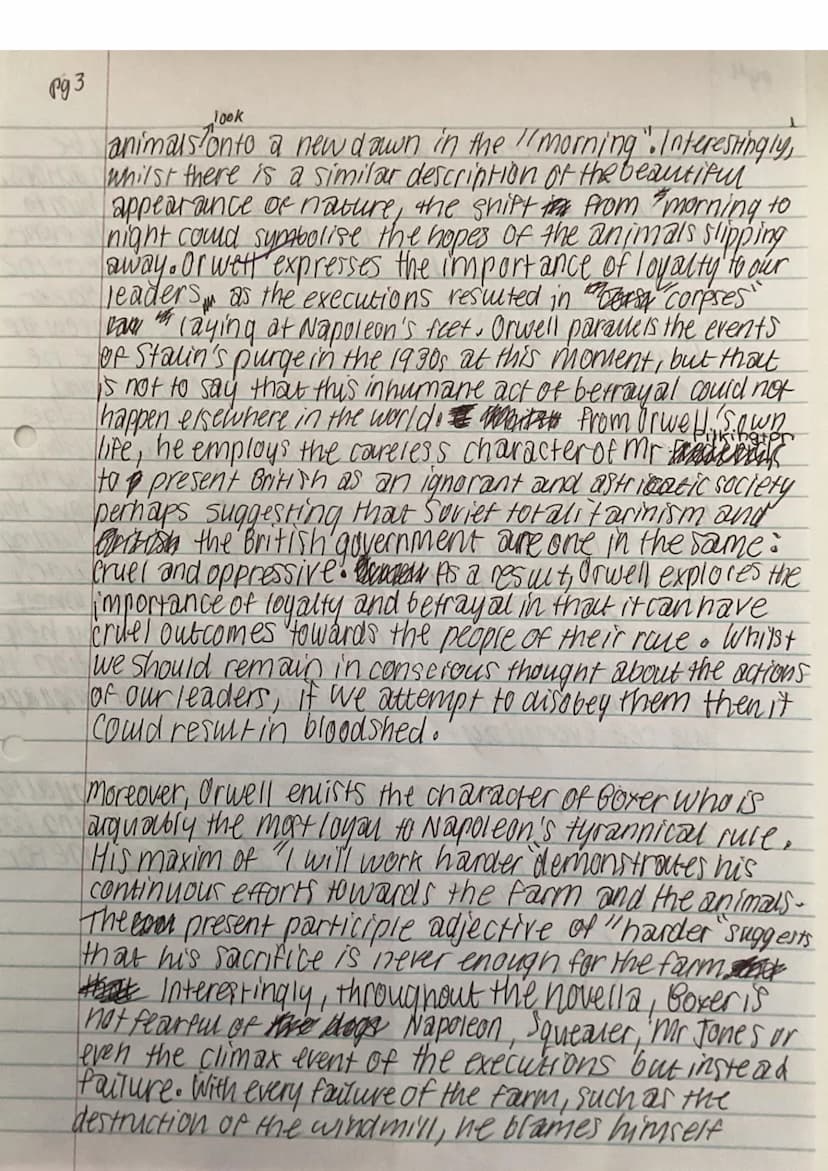 pg 3
look
animals onto a new dawn in the "morning". Interestingly,
whilst there is a similar description of the beautiful
appearance of nature, the shift from "morning to
night could symbolise the hopes of the animals slipping
away. Orwell expresses the importance of loyalty to our
leaders, as the executions resulted in "corpses"
laying at Napoleon's feet. Orwell parallels the events
of Stalin's purge in the 1930s at this moment, but that
is not to say that this inhumane act of betrayal could not
happen elsewhere in the world. From Orwell's own
life, he employs the careless character of Mr Pilkington
to present British as an ignorant and astricatic society
perhaps suggesting that Soviet totalitarinism and
the British government are one in the same:
cruel and oppressive. As a result, Orwell explores the
importance of loyalty and betrayal in that it can have
cruel outcomes towards the people of their rule. Whilst
we should remain in conserous thought about the actions
of our leaders, if we attempt to disobey them then it
could result in bloodshed.
Moreover, Orwell enlists the character of Boxer who is
arguably the most loyal to Napoleon's tyrannical rule.
His maxim of "I will work harder" demonstrates his
continuous efforts towards the farm and the animals.
The present participle adjective of "harder" suggests
that his sacrifice is never enough for the farm
Interestingly, throughout the novella, Boxer is
not fearful of Napoleon, Squealer, Mr Jones or
even the climax event of the executions but instead
failure. With every failure of the farm, such as the
destruction of the windmill, he blames himself